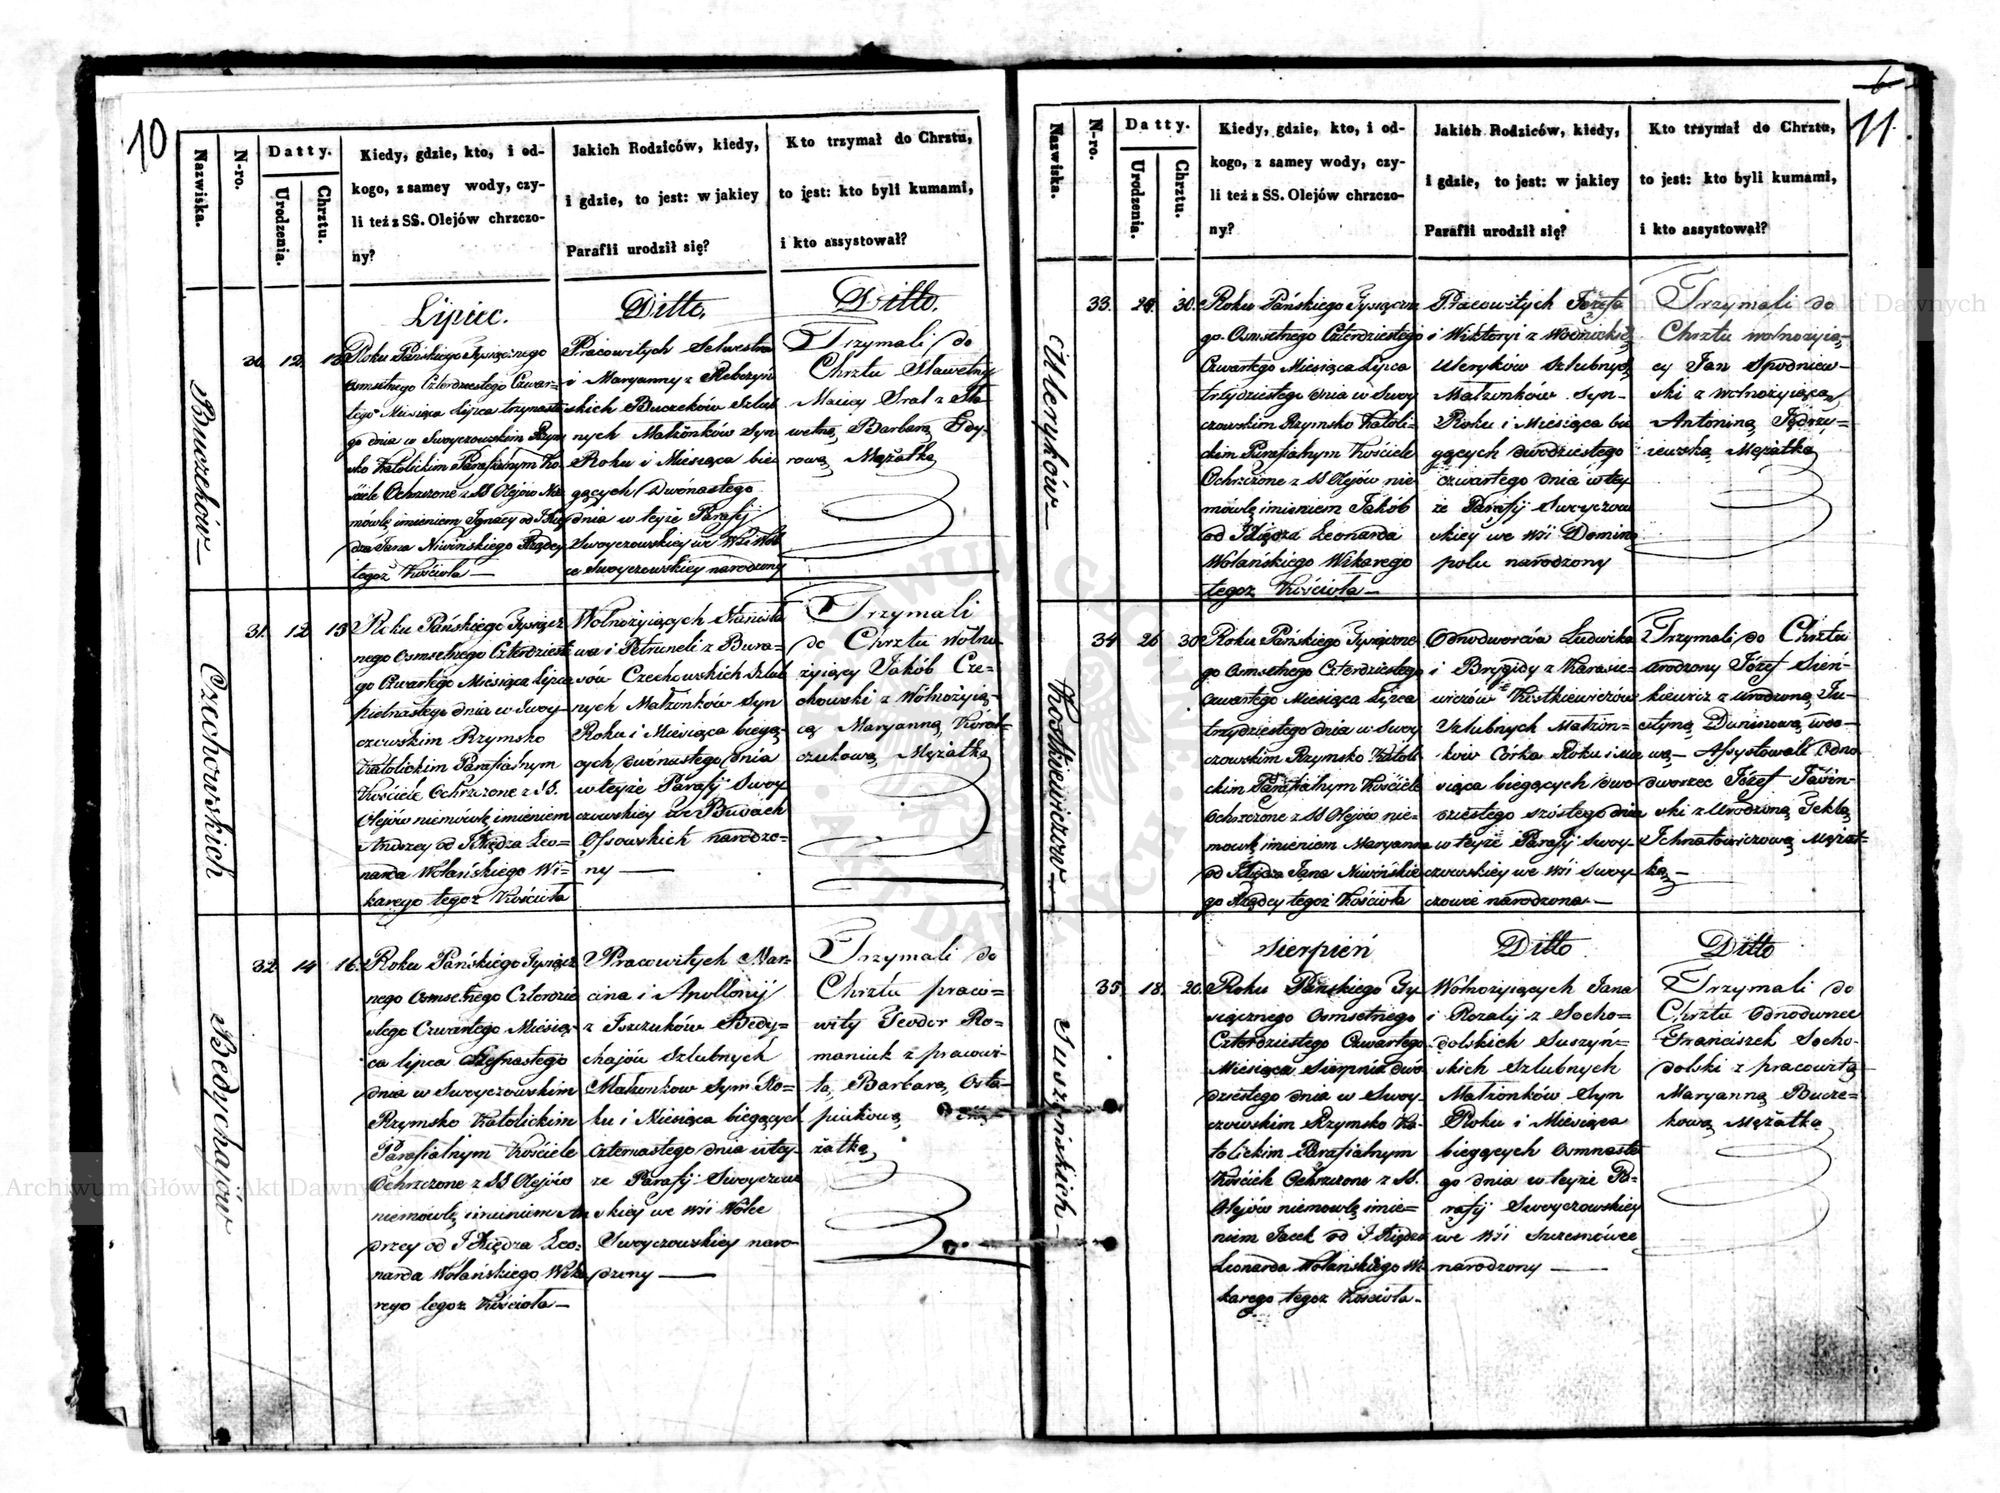 10
Nazwiska.
N-ro.
Datty.
Urodzenia.
Chrztu.
Kiedy, gdzie, kto, i od-
kogo, z samey wody, czy-
li też z SS. Olejów chrzczo-
ny?
Jakich Rodziców, kiedy,
i gdzie, to jest: w jakiey
Parafii urodził się?
Kto trzymał do Chrztu,
to jest: kto byli kumami,
i kto assystował?
Buczeków
30. 12.
Lipiec.
Roku Pańskiego Tysiącznego
Osmsetnego Czterdziestego Czwar-
tego Miesiąca Lipca trzynaste
go dnia w Swoyczowskim Rzym
sko Katolickim Parafialnym Ko
ściele Ochrzczone z SS Olejów Nie
mówlę imieniem Ignacy od JXię
dza Jana Niwińskiego Rządcy
tegoż Kościoła —
Ditto.
Pracowitych Selwestra
i Maryanny z Rebczyń
skich Buczeków Szlub
nych Małżonków Syn
Roku i Miesiąca bie
gących Dwónastego
dnia w teyże Parafij
Swoyczowskiey we Wsi Wól
ce Swoyczowskiey narodzony
Ditto.
Trzymali do
Chrztu Sławetny
Maciey Sral z Sła
wetną Barbarą Gdy-
rową Mężatką
Czechowskich
31. 12 15
Roku Pańskiego Tysiącz
nego Osmsetnego Czterdzieste
go Czwartego Miesiąca Lipca
pietnastego dnia w Swoy-
czowskim Rzymsko
Katolickim Parafialnym
Kościele Ochrzczone z SS.
Olejów niemówlę imieniem
Andrzey od JXiędza Leo-
narda Wolańskiego Wi-
karego tegoż Kościoła
Wolnożyiących Stanisła
wa i Petruneli z Bura-
sów Czechowskich Szlub
nych Małżonków Syn
Roku i Miesiąca biegą
cych dwónastego dnia
w teyże Parafij Swoy
czowskiey we Budach
Ossowskich narodzo-
ny —
Trzymali
do Chrztu Wolno
żyiący Jakób Cze-
chowski z Wolnożyią-
cą Maryanną Koral-
czukową Mężatką
Bedychajów
32. 14 16.
Roku Pańskiego Tysiącz
nego Osmsetnego Czterdzie
stego Czwartego Miesią-
ca lipca Szesnastego
dnia w Swoyczowskim
Rzymsko Katolickim
Parafialnym Kościele
Ochrzczone z SS Olejów
niemówlę imieniem An
drzey od JXiędza Leo-
narda Wolańskiego Wika
rego tegoż Kościoła —
Pracowitych Mar-
cina i Apollonij
z Iszczuków Bedy-
chajów Szlubnych
Małżonków Syn Ro-
ku i Miesiąca biegących
czternastego dnia w tey
że Parafij Swoyczow
skiey we Wsi Wolce
Swoyczowskiey naro
dzony —
Trzymali do
Chrztu praco-
wity Teodor Ro-
maniuk z pracowi-
tą Barbarą Osta-
piukową Mę-
żatką
6
11
Nazwiska.
N-ro.
Datty.
Urodzenia.
Chrztu.
Kiedy, gdzie, kto, i od-
kogo, z samey wody, czy-
li też z SS. Olejów chrzczo-
ny?
Jakich Rodziców, kiedy,
i gdzie, to jest: w jakiey
Parafii urodził się?
Kto trzymał do Chrztu,
to jest: kto byli kumami,
i kto assystował?
Uleryków
33. 24. 30.
Roku Pańskiego Tysiączne
go Osmsetnego Czterdziestego
Czwartego Miesiąca Lipca
trzydziestego dnia w Swoy
czowskim Rzymsko Katoli-
ckim Parafialnym Kościele
Ochrzczone z SS Olejów nie
mówlę imieniem Jakób
od JXiędza Leonarda
Wolańskiego Wikarego
tegoż Kościoła —
Pracowitych Józefa
i Wiktoryi z
Uleryków Szlubnych
Małżonków Syn-
Roku i Miesiąca bie
gących dwódziestego
czwartego dnia w tey
że Parafij Swoyczow
skiey we Wsi Domino
polu narodzony
Trzymali do
Chrztu wolnożyią-
cy Jan Spodniew-
ski z wolnożyiącą
Antoniną Jędrzy-
iewską Mężatką
Kostkiewiczow
34 26 30
Roku Pańskiego Tysiączne
go Osmsetnego Czterdziestego
Czwartego Miesiąca Lipca
trzydziestego dnia w Swoy
czowskim Rzymsko Katoli
ckim Parafialnym Kościele
Ochrzczone z SS Olejów nie-
mówlę imieniem Maryanna
od JXiędza Jana Niwińskie
go Rządcy tegoż Kościoła
Odnodworców Ludwika
i Brygidy z Karasie-
wiczów Kostkiewiczów
Szlubnych Małżon-
ków Córka Roku i Mie
siąca biegących dwó
dziestego szóstego dnia
w teyże Parafij Swoy-
czowskiey we Wsi Swoy
czowie narodzona —
Trzymali do Chrztu
Urodzony Józef Sień-
kiewicz z Urodzoną Ju-
styną Duninową wdo-
wą — Assystowali Odno
dworzec Józef
ski z Urodzoną Teklą
Ichnatowiczową Mężat-
ką —
Suszyńskich
35. 18. 20.
Sierpień
Roku Pańskiego Ty-
siącznego Osmsetnego
Czterdziestego Czwartego
Miesiąca Sierpnia dwó
dziestego dnia w Swoy-
czowskim Rzymsko Ka-
tolickim Parafialnym
Kościele Ochrzczone z SS.
Olejów niemowlę imie-
niem Jacek od JXiędza
Leonarda Wolańskiego Wi
karego tegoż Kościoła.
Ditto
Wolnożyiących Jana
i Rozalij z Socho-
dolskich Suszyń-
skich Szlubnych
Małżonków Syn
Roku i Miesiąca
biegących Osmnaste
go dnia w teyże Pa-
rafij Swoyczowskiey
we Wsi Szczesnówce
narodzony —
Ditto
Trzymali do
Chrztu Odnodworzec
Franciszek Socho-
dolski z pracowitą
Maryanną Bucze-
kową Mężatką
Archiwum Główne Akt Dawnych